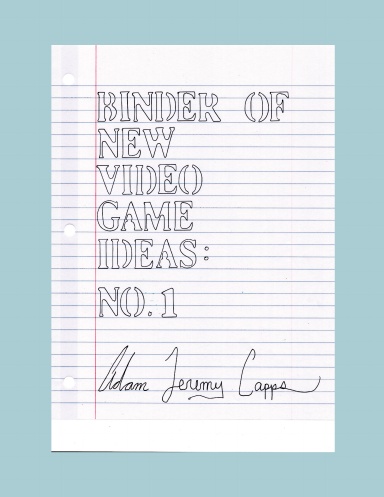 BINDER OF
NEW
VIDEO
GAME
IDEAS:
NO. 1
Adam Jeremy Capps